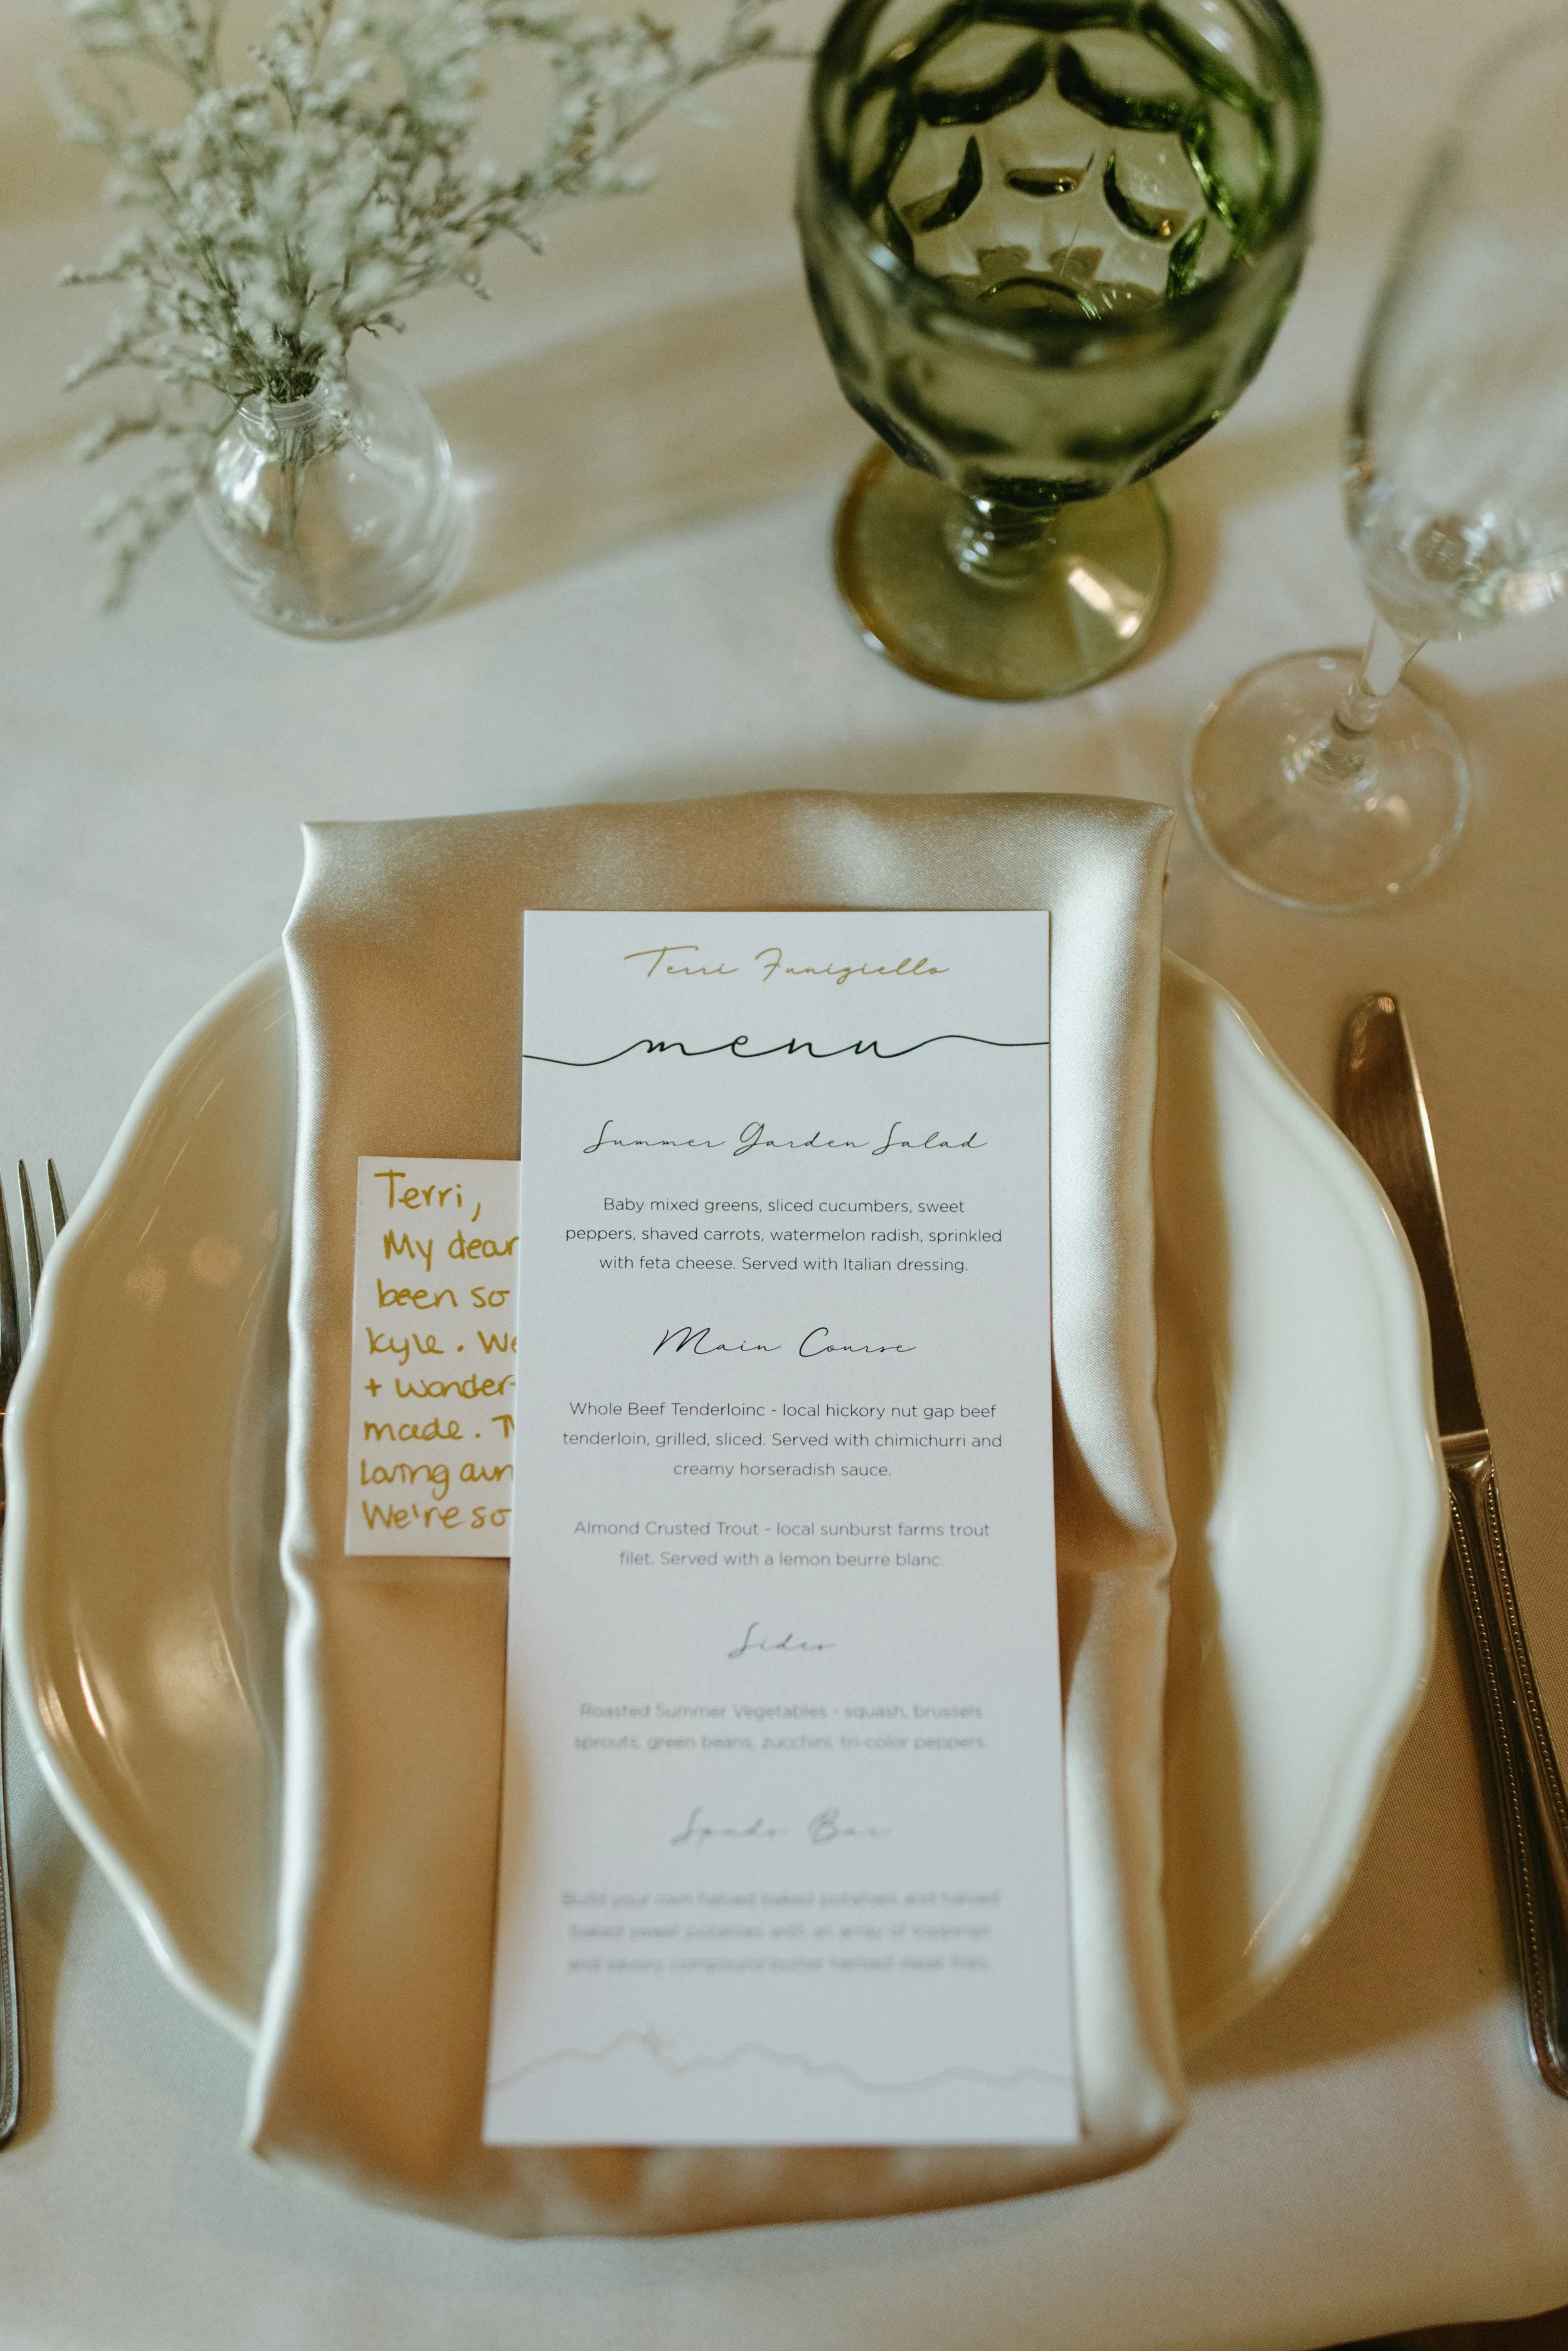 Terri Funigiello
menu
Summer Garden Salad
Baby mixed greens, sliced cucumbers, sweet
peppers, shaved carrots, watermelon radish, sprinkled
with feta cheese. Served with Italian dressing.
Main Course
Whole Beef Tenderloinc - local hickory nut gap beef
tenderloin, grilled, sliced. Served with chimichurri and
creamy horseradish sauce.
Almond Crusted Trout - local sunburst farms trout
filet. Served with a lemon beurre blanc.
Sides
Roasted Summer Vegetables - squash, brussels
sprouts, green beans, zucchini, tri-color peppers.
Spuds Bar
Build your own halved baked potatoes and halved
baked sweet potatoes with an array of toppings
and savory compound butter
Terri,
My dear
been so
Kyle. We
+ wonder-
made.
loving
We're so